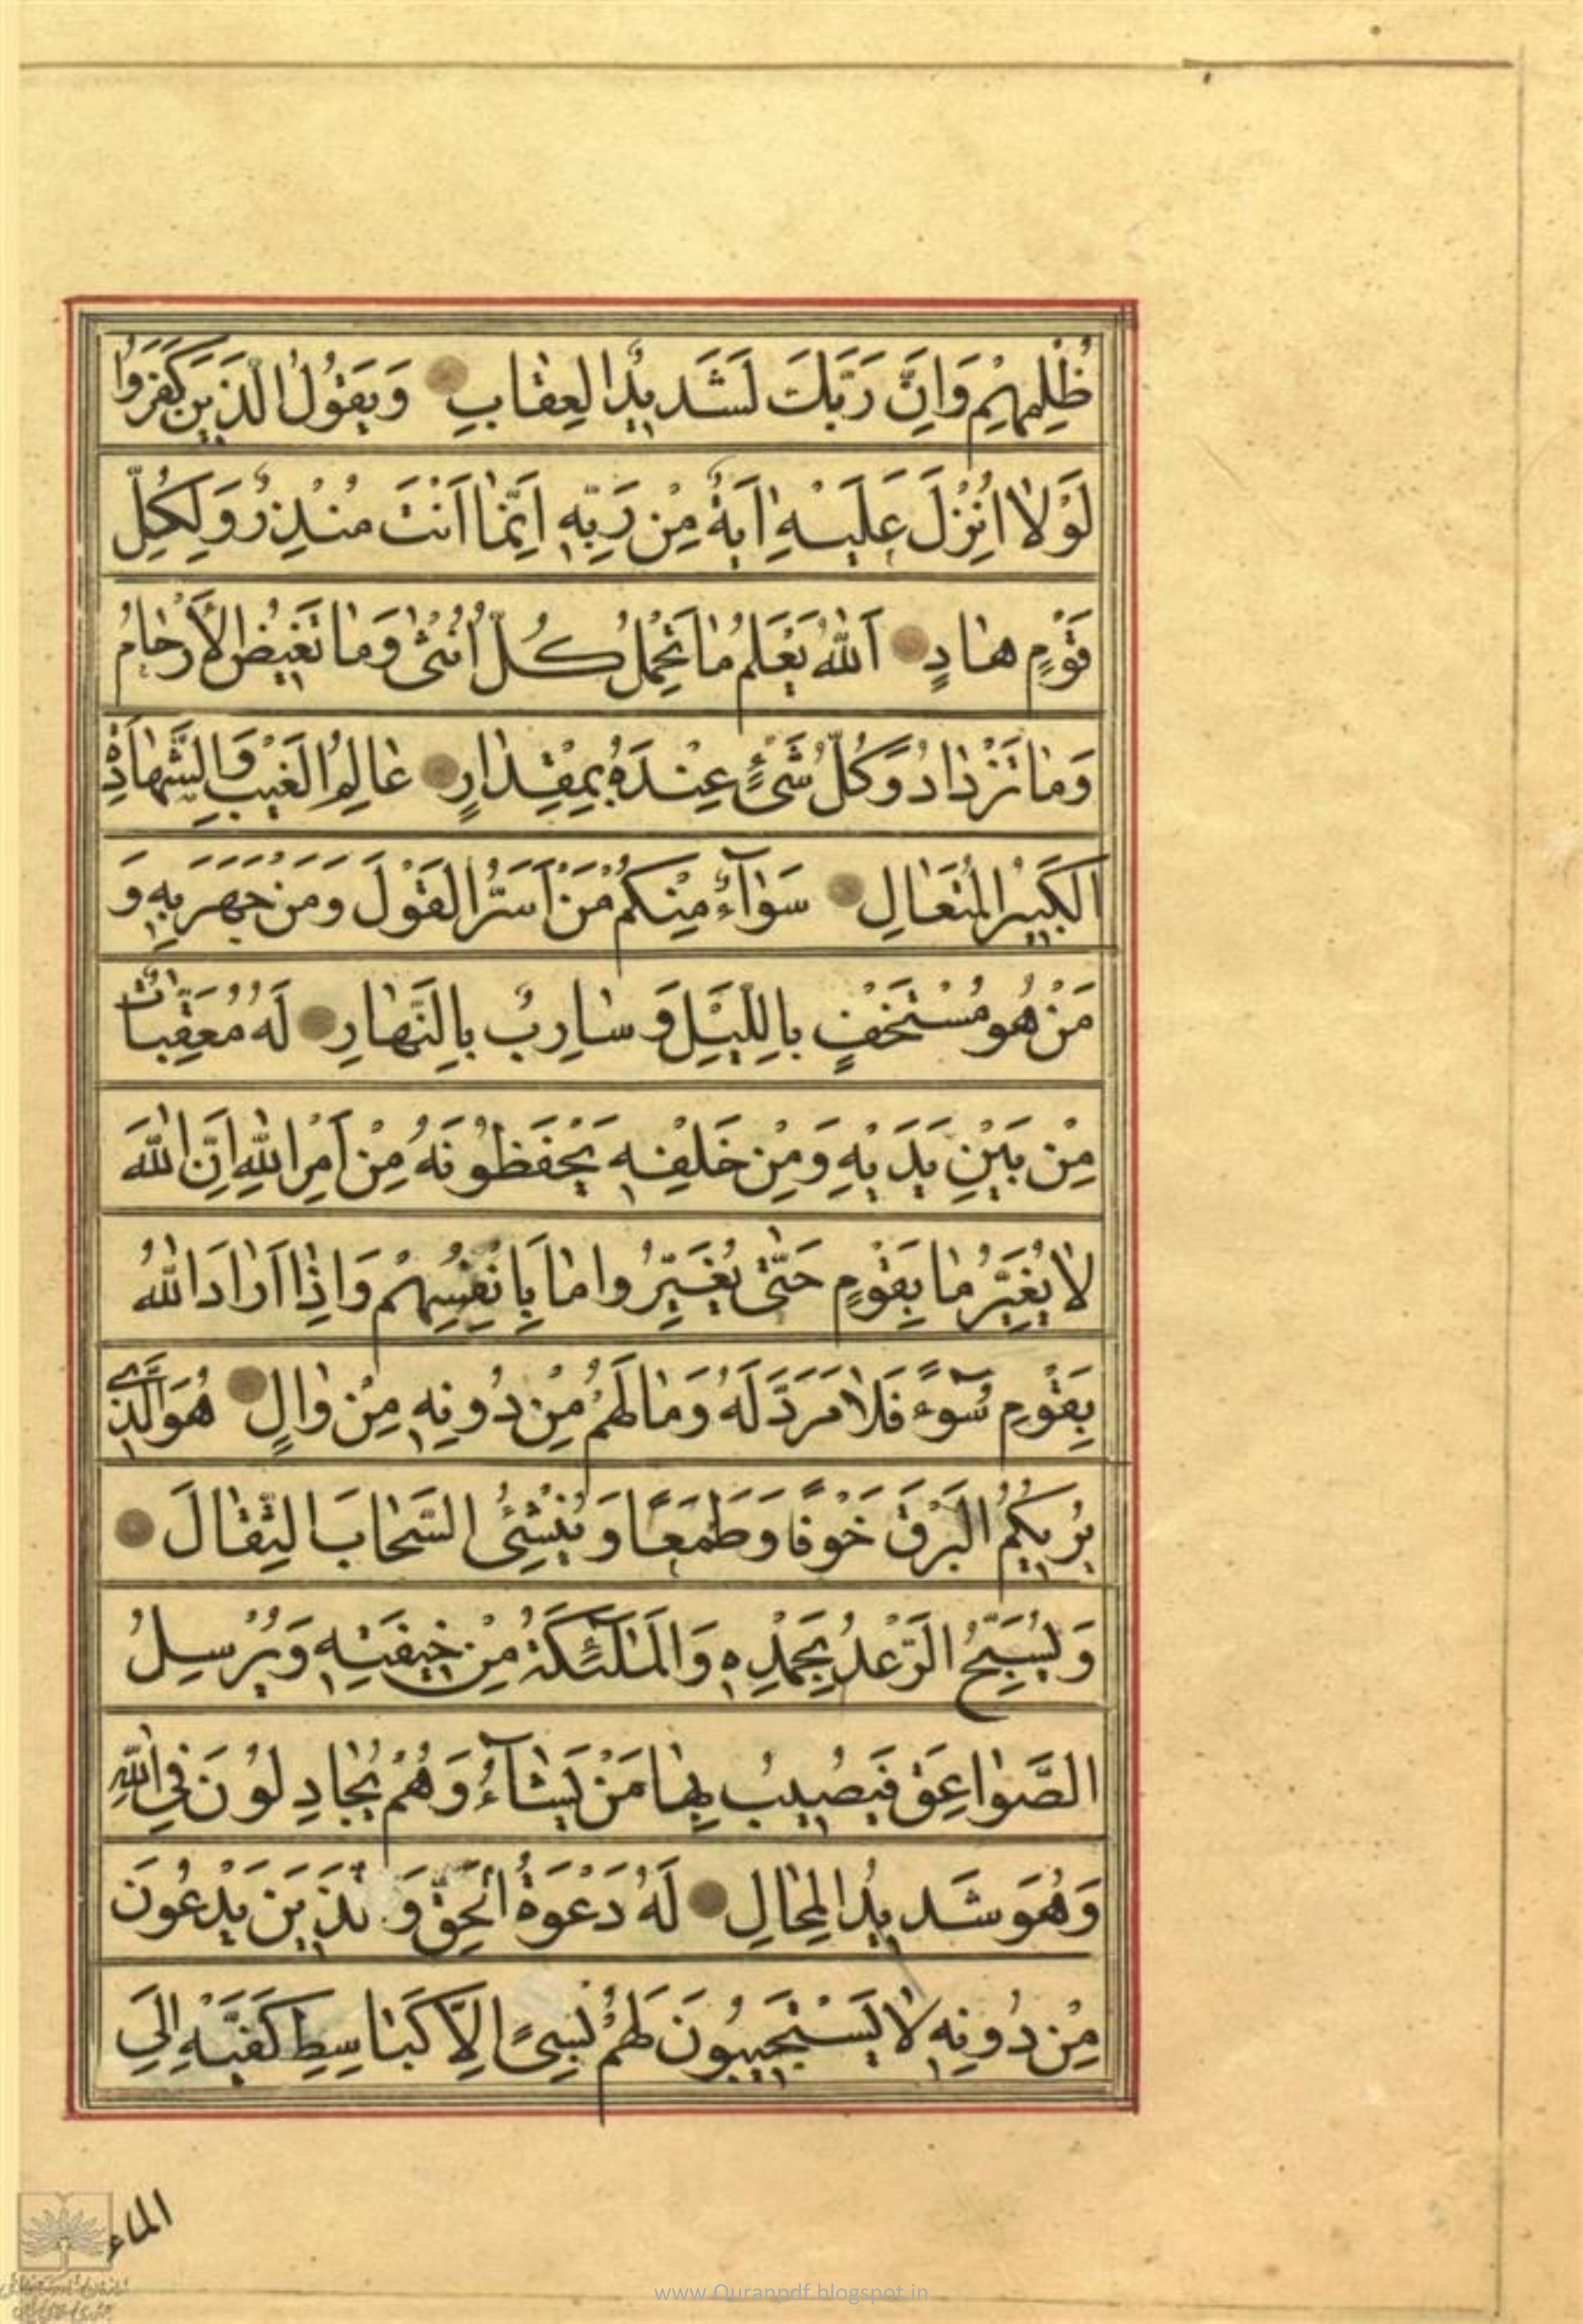 ظُلْمِهِمْ وَاِنَّ رَبَّكَ لَشَدیدُ الْعِقٰابِ وَیَقُولُ الَّذینَ كَفَرُوا
لَوْلاٰ اُنْزِلَ عَلَیْهِ اٰیَةٌ مِنْ رَبِّهِ اِنَّمٰا اَنْتَ مُنْذِرٌ وَلِكُلِّ
قَوْمٍ هٰادٍ اَللّٰهُ یَعْلَمُ مٰا تَحْمِلُ كُلُّ اُنْثیٰ وَمٰا تَغیضُ الْاَرْحٰامُ
وَمٰا تَزْدٰادُ وَكُلُّ شَیْءٍ عِنْدَهُ بِمِقْدٰارٍ عٰالِمُ الْغَیْبِ وَالشَّهٰادَةِ
الْكَبیرُ الْمُتَعٰالِ سَوٰآءٌ مِنْكُمْ مَنْ اَسَرَّ الْقَوْلَ وَمَنْ جَهَرَ بِهِ وَ
مَنْ هُوَ مُسْتَخْفٍ بِاللَّیْلِ وَ سٰارِبٌ بِالنَّهٰارِ لَهُ مُعَقِّبٰاتٌ
مِنْ بَیْنِ یَدَیْهِ وَمِنْ خَلْفِهِ یَحْفَظُونَهُ مِنْ اَمْرِ اللّٰهِ اِنَّ اللّٰهَ
لاٰ یُغَیِّرُ مٰا بِقَوْمٍ حَتّیٰ یُغَیِّرُوا مٰا بِاَنْفُسِهِمْ وَاِذٰا اَرٰادَ اللّٰهُ
بِقَوْمٍ سُوٓءً فَلاٰ مَرَدَّ لَهُ وَمٰا لَهُمْ مِنْ دُونِهِ مِنْ وٰالٍ هُوَ الَّذی
یُریكُمُ الْبَرْقَ خَوْفًا وَطَمَعًا وَیُنْشِئُ السَّحٰابَ الثِّقٰالَ
وَیُسَبِّحُ الرَّعْدُ بِحَمْدِهِ وَالْمَلٰٓئِكَةُ مِنْ خیفَتِهِ وَیُرْسِلُ
الصَّوٰاعِقَ فَیُصیبُ بِهٰا مَنْ یَشٰآءُ وَهُمْ یُجٰادِلُونَ فِی اللّٰهِ
وَهُوَ شَدیدُ الْمِحٰالِ لَهُ دَعْوَةُ الْحَقِّ وَالَّذینَ یَدْعُونَ
مِنْ دُونِهِ لاٰ یَسْتَجیبُونَ لَهُمْ بِشَیْءٍ اِلاَّ كَبٰاسِطِ كَفَّیْهِ اِلَی
الماء
www.Quranpdf.blogspot.in